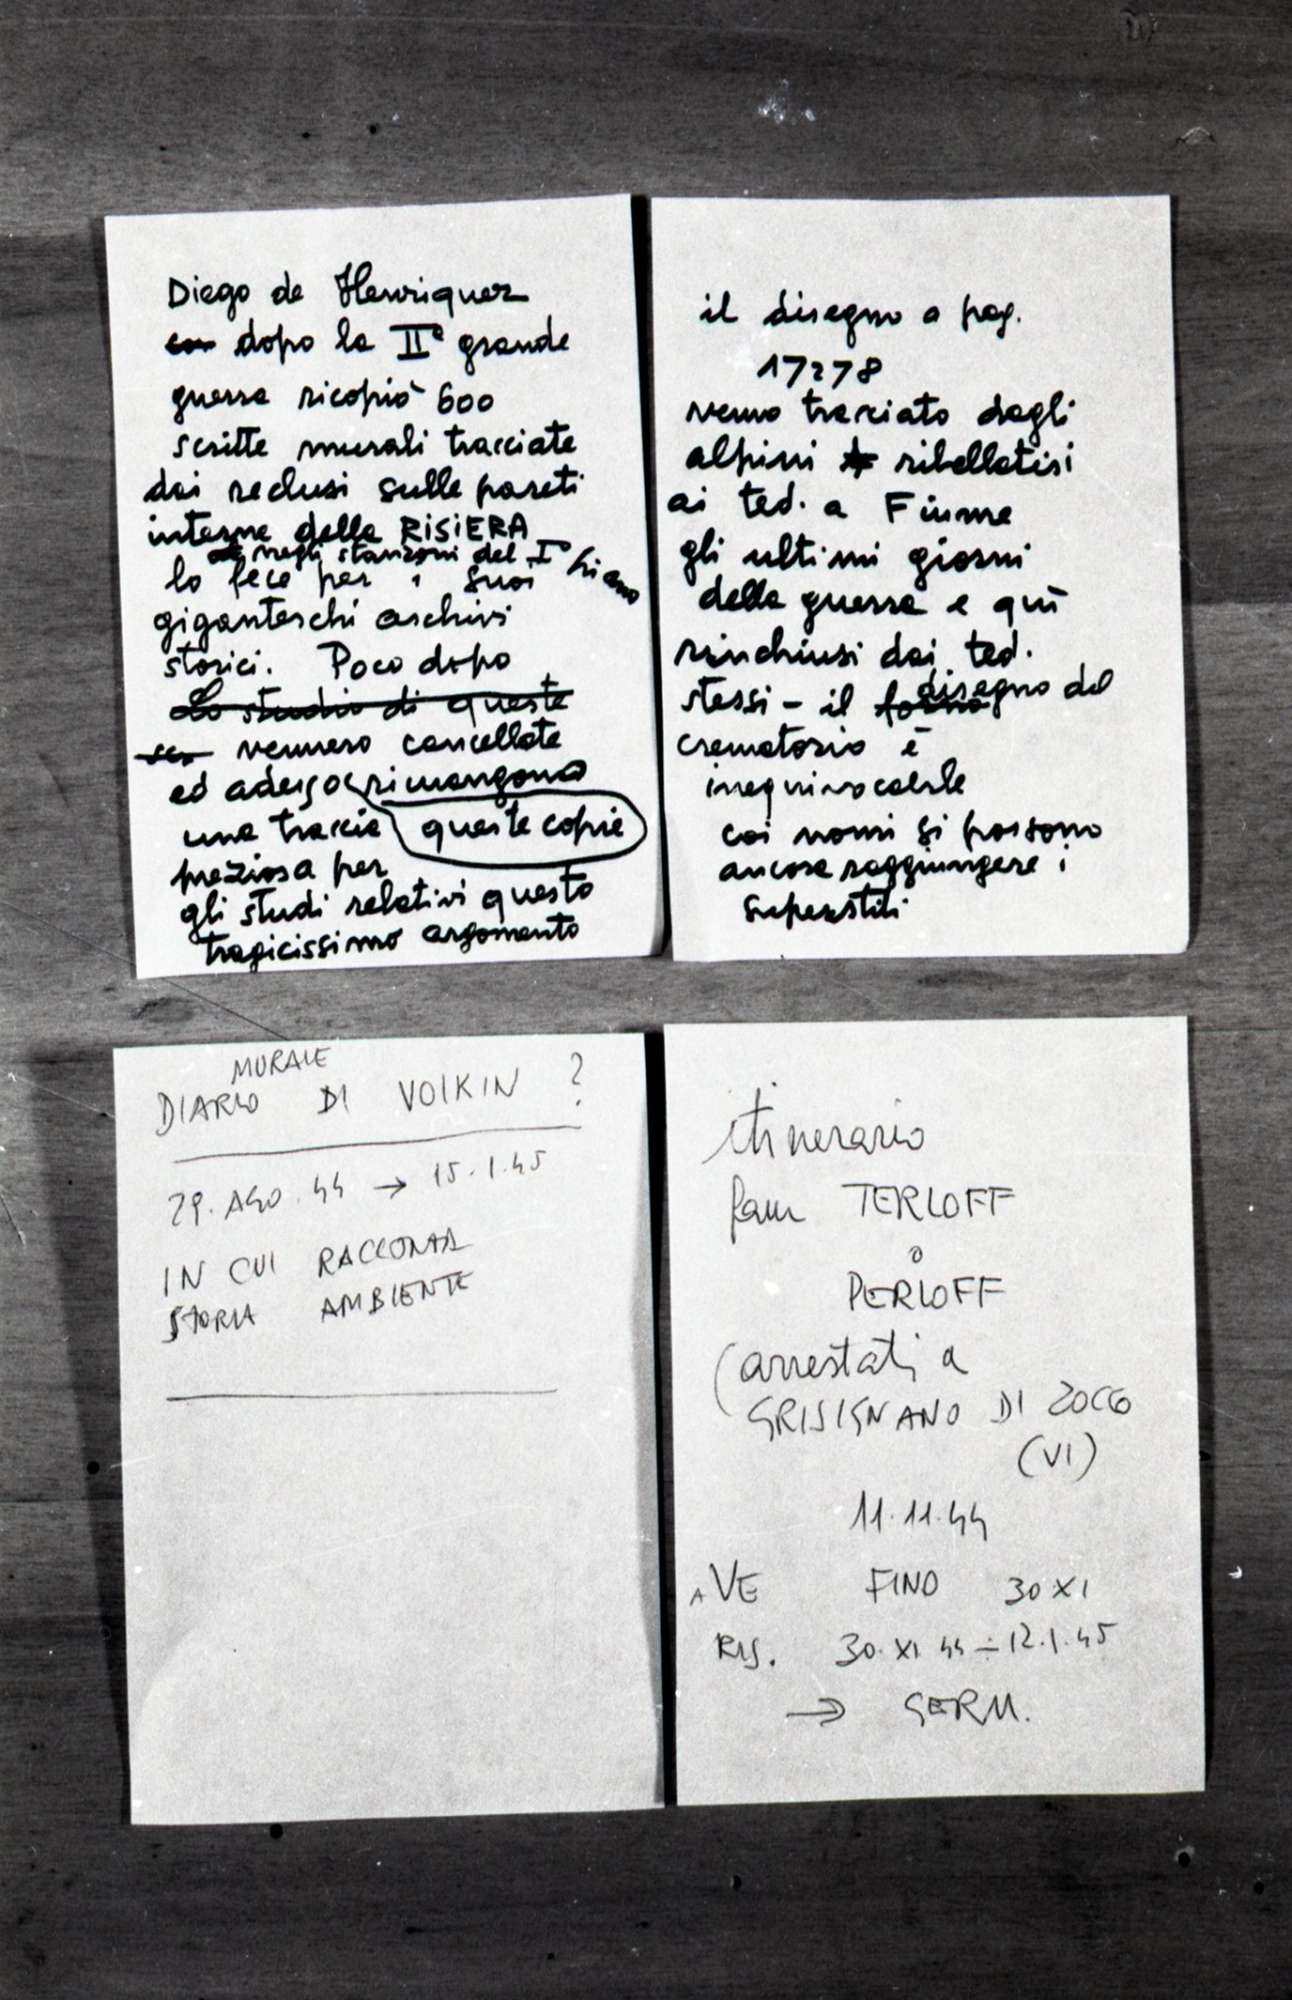 Diego de Henriquez
dopo la IIª grande
guerra ricopiò 600
scritte murali tracciate
dai reclusi sulle pareti
interne della RISIERA
negli stanzoni del I° piano
lo fece per i suoi
giganteschi archivi
storici. Poco dopo
Lo studio di queste
vennero cancellate
ed adesso rimangono
una traccia queste copie
preziosa per
gli studi relativi questo
tragicissimo argomento
il disegno a pag.
17278
venne tracciato dagli
alpini ribellatisi
ai ted. a Fiume
gli ultimi giorni
della guerra e quì
rinchiusi dai ted.
stessi - il disegno del
crematorio è
inequivocabile
coi nomi si possono
ancora raggiungere i
superstiti
MURALE
DIARIO DI VOLKIN ?
29. AGO. 44 → 15.1.45
IN CUI RACCONTA
STORIA AMBIENTE
itinerario
fam TERLOFF
o
PERLOFF
(arrestati a
GRISIGNANO DI ZOCCO
(VI)
11.11.44
A VE FINO 30 XI
RIS. 30.XI 44 ÷ 12.1.45
→ GERM.